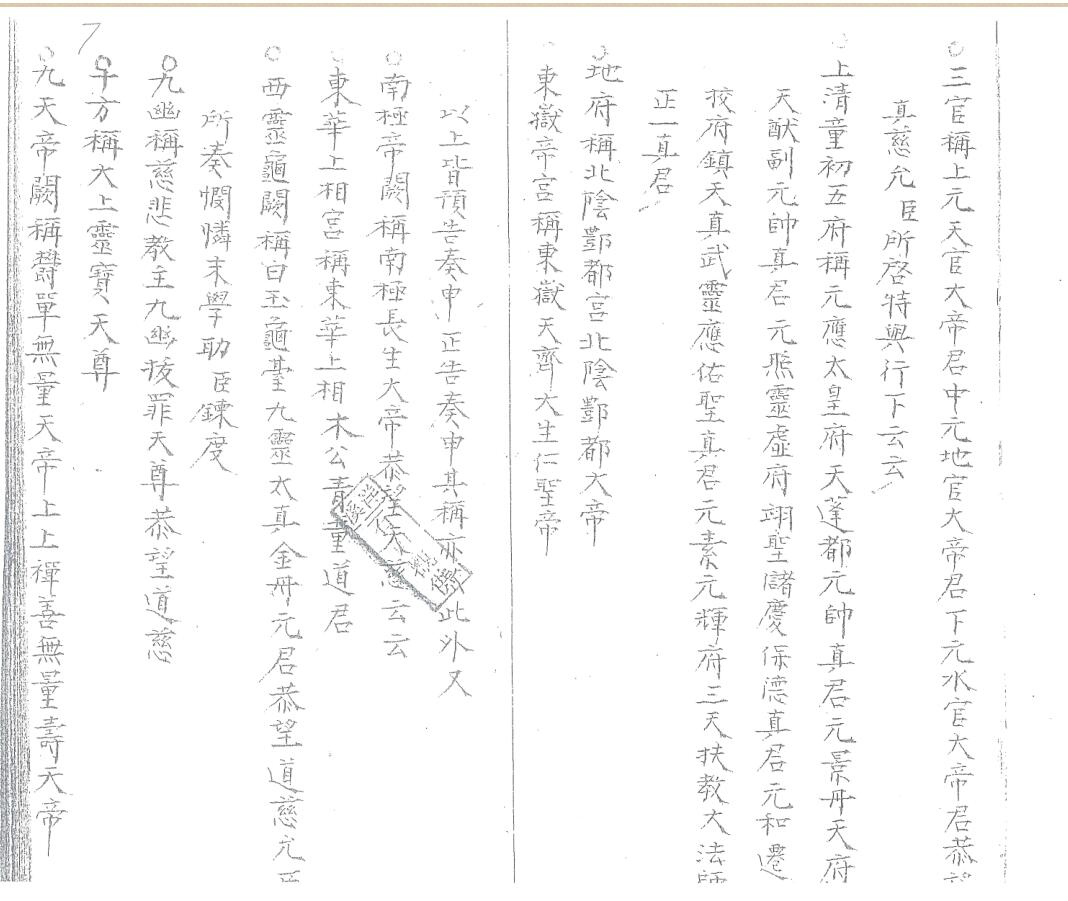 ○三官稱上元天官大帝君中元地官大帝君下元水官大帝君恭望
真慈允臣所啓特與行下云云
○上清童初五府稱元應太皇府天蓬都元帥真君元景丹天府
天猷副元帥真君元照靈虛府翊聖儲慶保德真君元和遷
校府鎮天真武靈應佑聖真君元素元輝府三天扶教大法師
正一真君
○地府稱北陰酆都宮北陰酆都大帝
○東嶽帝宮稱東嶽天齊大生仁聖帝
以上皆預告奏申正告奏申其稱亦 此外又
○南極帝闕稱南極長生大帝恭望天慈云云
○東華上相宮稱東華上相木公青童道君
○西靈龜闕稱白玉龜臺九靈太真金丹元君恭望道慈允臣
所奏憫憐末學助臣鍊度
○九幽稱慈悲教主九幽拔罪天尊恭望道慈
○十方稱太上靈寶天尊
○九天帝闕稱鬱單無量天帝上上禪善無量壽天帝
7